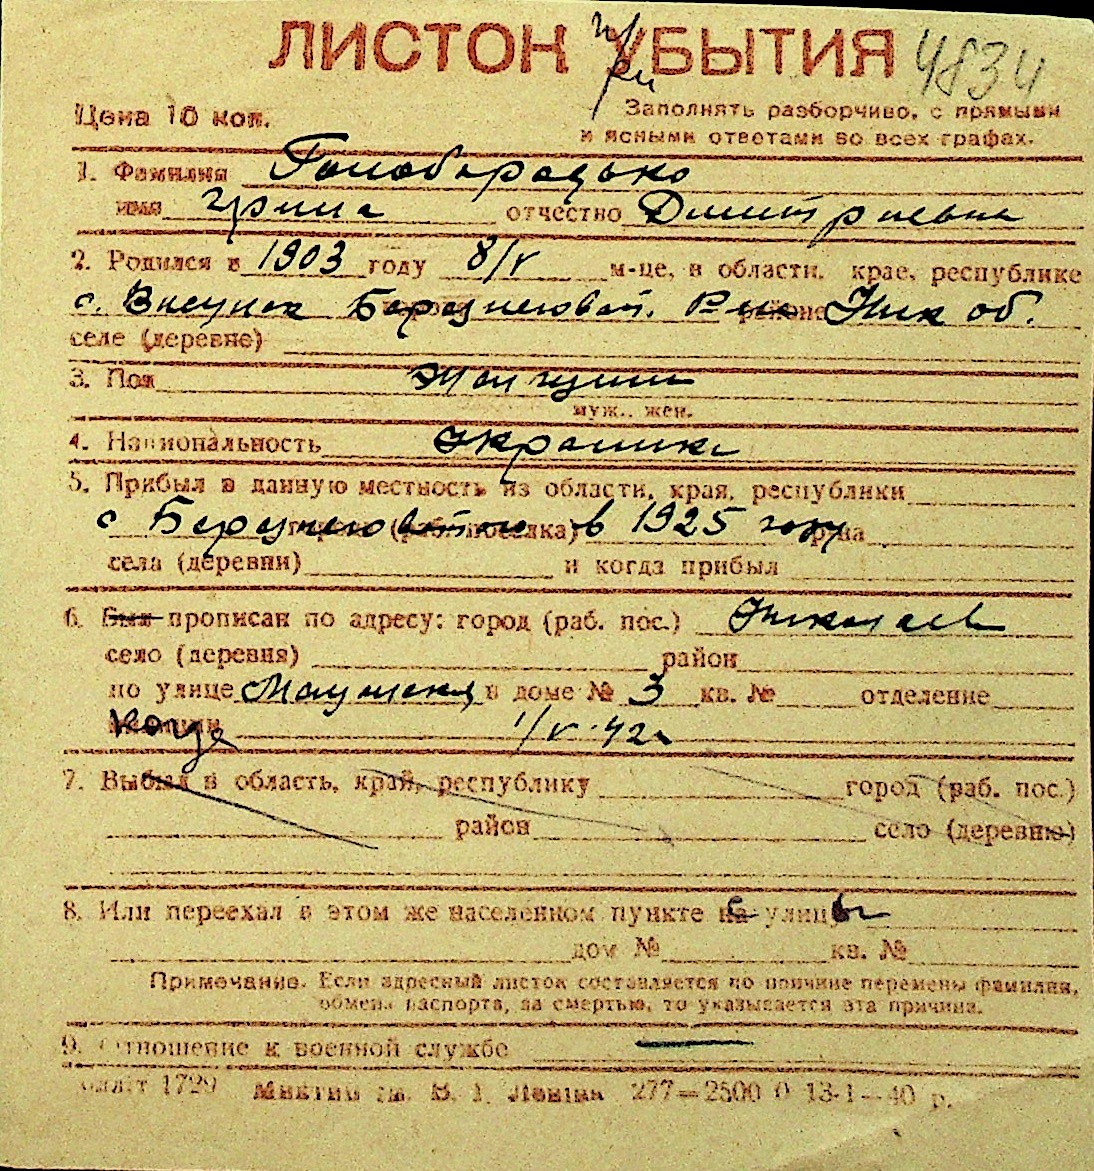 ЛИСТОК УБЫТИЯ
при
4834
Цена 10 коп.
Заполнять разборчиво, с прямыми
и ясными ответами во всех графах.
1. Фамилия Голобородько
имя Ірина отчество Дмитриевна
2. Родился в 1903 году 8/V м-це, в области, крае, республике
с. Висунск Березнеговат. Р-на районе Ник об.
селе (деревне)
3. Пол Женщина
муж., жен.
4. Национальность Украинка
5. Прибыл в данную местность из области, края, республики
с Березнеговатое в 1925 году
города (раб. поселка) р-на
села (деревни) и когда прибыл
6. Был прописан по адресу: город (раб. пос.) Николаев
село (деревня) район
по улице в доме № 3 кв. № отделение
милиции Когда 1/V-42г
7. Выбыл в область, край, республику город (раб. пос.)
район село (деревню)
8. Или переехал в этом же населенном пункте на улицу с ы
дом № кв. №
Примечание. Если адресный листок составляется по причине перемены фамилии,
обмена паспорта, за смертью, то указывается эта причина.
9. Отношение к военной службе
1729 им. В. І. Леніна 277—2500 0 13-1—40 р.